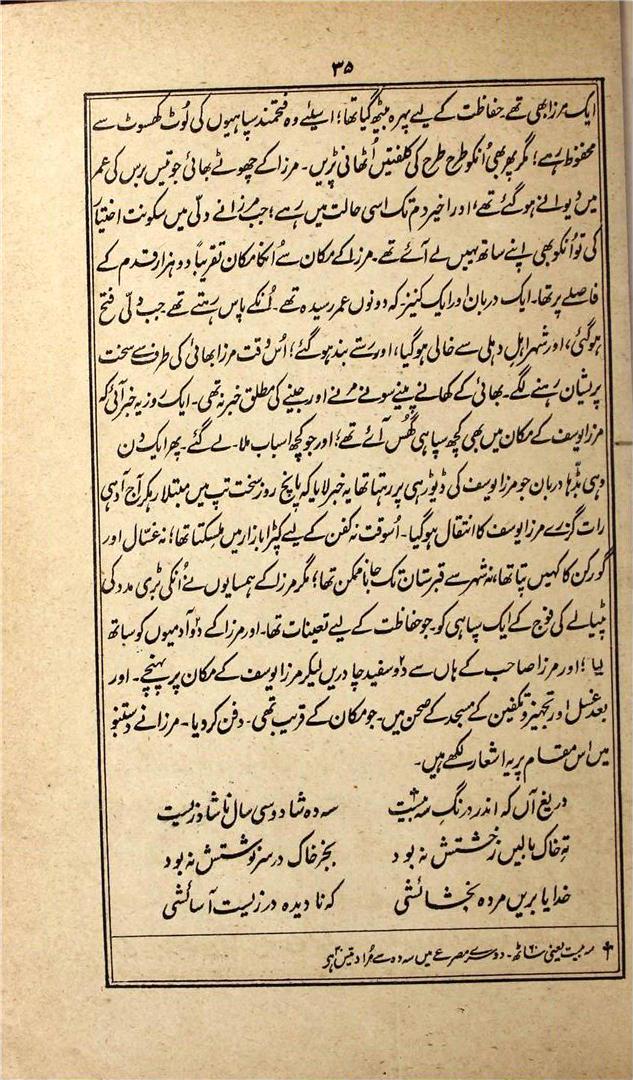 ۳۵
ایک مرزا بھی تھے حفاظت کے لیے پہرہ بیٹھ گیا تھا؛ اسلئے وہ فتحمند سپاہیوں کی لُوٹ کھسوٹ سے
محفوظ رہے؛ مگر پھر بھی اُنکو طرح طرح کی کلفتیں اُٹھانی پڑیں۔ مرزا کے چھوٹے بھائی جو تیس برس کی عمر
میں دیوانے ہو گئے تھے؛ اور اخیر دم تک اسی حالت میں رہے؛ جب مرزا نے دلّی میں سکونت اختیار
کی تو اُنکو بھی اپنے ساتھ یہیں لے آئے تھے۔ مرزا کے مکان سے اُنکا مکان تقریباً دو ہزار قدم کے
فاصلے پر تھا۔ ایک دربان اور ایک کنیز۔ کہ دونوں عمر رسیدہ تھے۔ اُنکے پاس رہتے تھے جب دلّی فتح
ہو گئی، اور شہر اہلِ دہلی سے خالی ہو گیا، اور رستے بند ہو گئے؛ اُس وقت مرزا بھائی کی طرف سے سخت
پریشان رہنے لگے۔ بھائی کے کھانے پینے سونے مرنے اور جینے کی مطلق خبر نہ تھی۔ ایک روز یہ خبر آئی کہ
مرزا یوسف کے مکان میں بھی کچھ سپاہی گھُس آئے تھے؛ اور جو کچھ اسباب ملا۔ لے گئے۔ پھر ایک دن
وہی بڈّھا دربان جو مرزا یوسف کی ڈیوڑھی پر رہتا تھا یہ خبر لایا کہ پانچ روز سخت تپ میں مبتلا رہکر آج آدھی
رات گزرے مرزا یوسف کا انتقال ہو گیا۔ اُسوقت نہ کفن کے لیے کپڑا بازار میں ملسکتا تھا؛ نہ غسّال اور
گورکن کا کہیں پتا تھا، نہ شہر سے قبرستان تک جانا ممکن تھا؛ مگر مرزا کے ہمسایوں نے اُنکی بڑی مدد کی
پٹیالے کی فوج کے ایک سپاہی کو۔ جو حفاظت کے لیے تعینات تھا۔ اور مرزا کے دو آدمیوں کو ساتھ
لیا؛ اور مرزا صاحب کے ہاں سے دو سفید چادریں لیکر مرزا یوسف کے مکان پر پہنچے۔ اور
بعد غسل اور تجہیز و تکفین کے مسجد کے صحن میں۔ جو مکان کے قریب تھی۔ دفن کر دیا۔ مرزا نے دستنبو
میں اس مقام پر یہ اشعار لکھے ہیں۔
دریغ آں کہ اندر درنگِ سہ بیست † سہ دہ شاد و سی سال ناشاد زیست
تہِ خاک بالیں ز خشتش نہ بود بجز خاک در سرنوشتش نہ بود
خدایا بریں مردہ بخشائشی کہ نادیدہ در زیست آسائشی
† سہ بیست یعنی ساٹھ ۶۰۔ دوسرے مصرعے میں سہ دہ سے مُراد تیس ۳۰ ہی